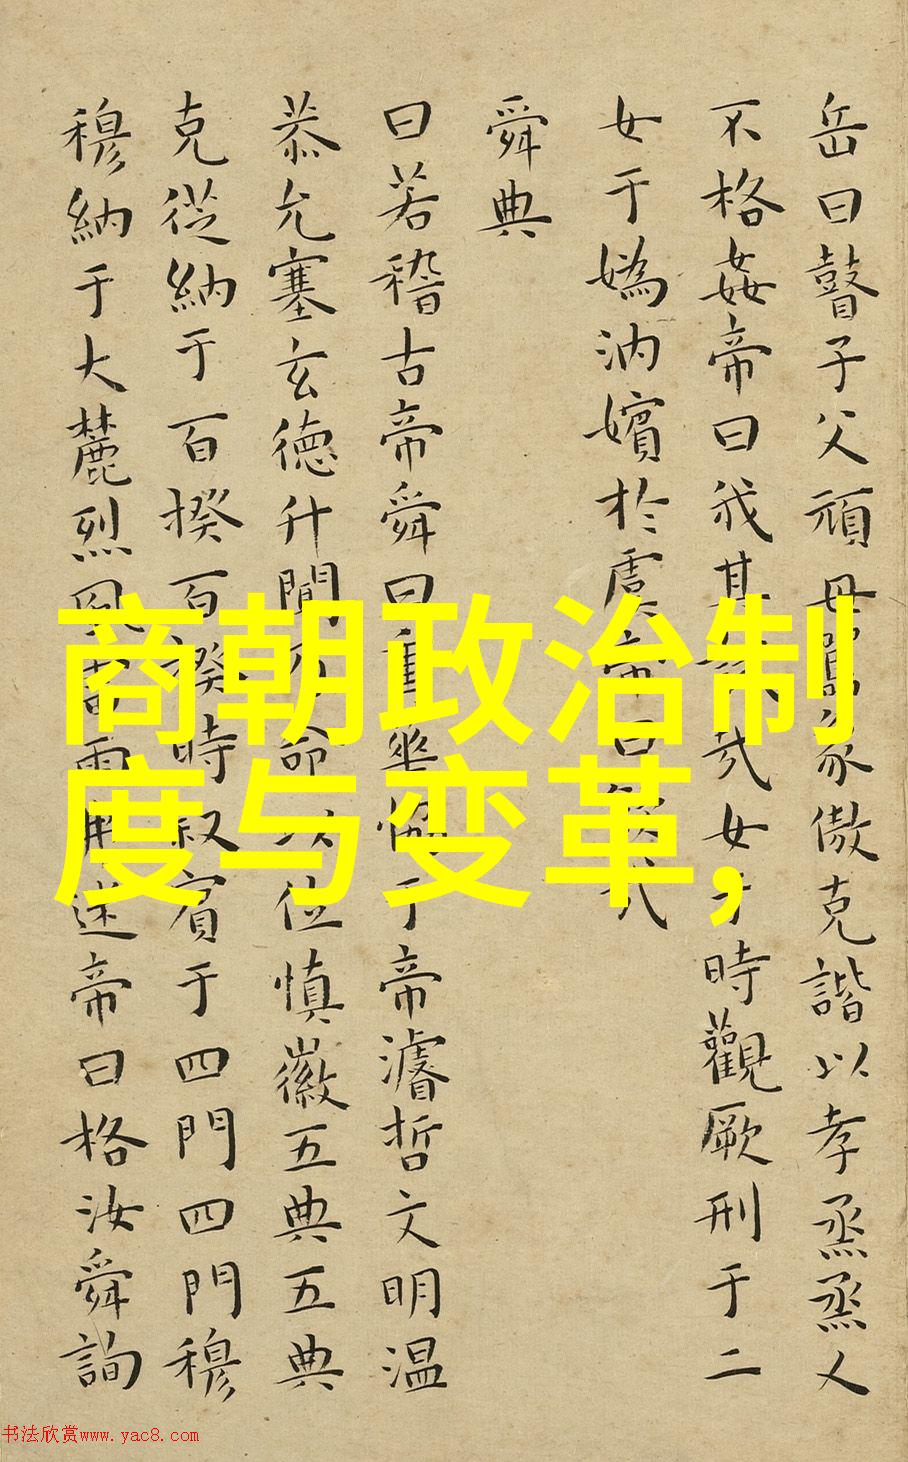 岳曰瞽子父頑母嚚象傲克諧以孝烝烝乂
不格姦帝曰我其哉女于時觀厥刑于二
女于媯汭嬪於虞帝曰欽哉
舜典
曰若稽古帝舜曰重華協于帝濬哲文明温
恭允塞玄德升聞乃命以位慎徽五典五典
克從納于百揆百揆時叙賓于四門四門穆
穆納于大麓烈風雷雨弗迷帝曰格汝舜詢
商朝政治制
度与变革,
书法欣赏www.yac8.com